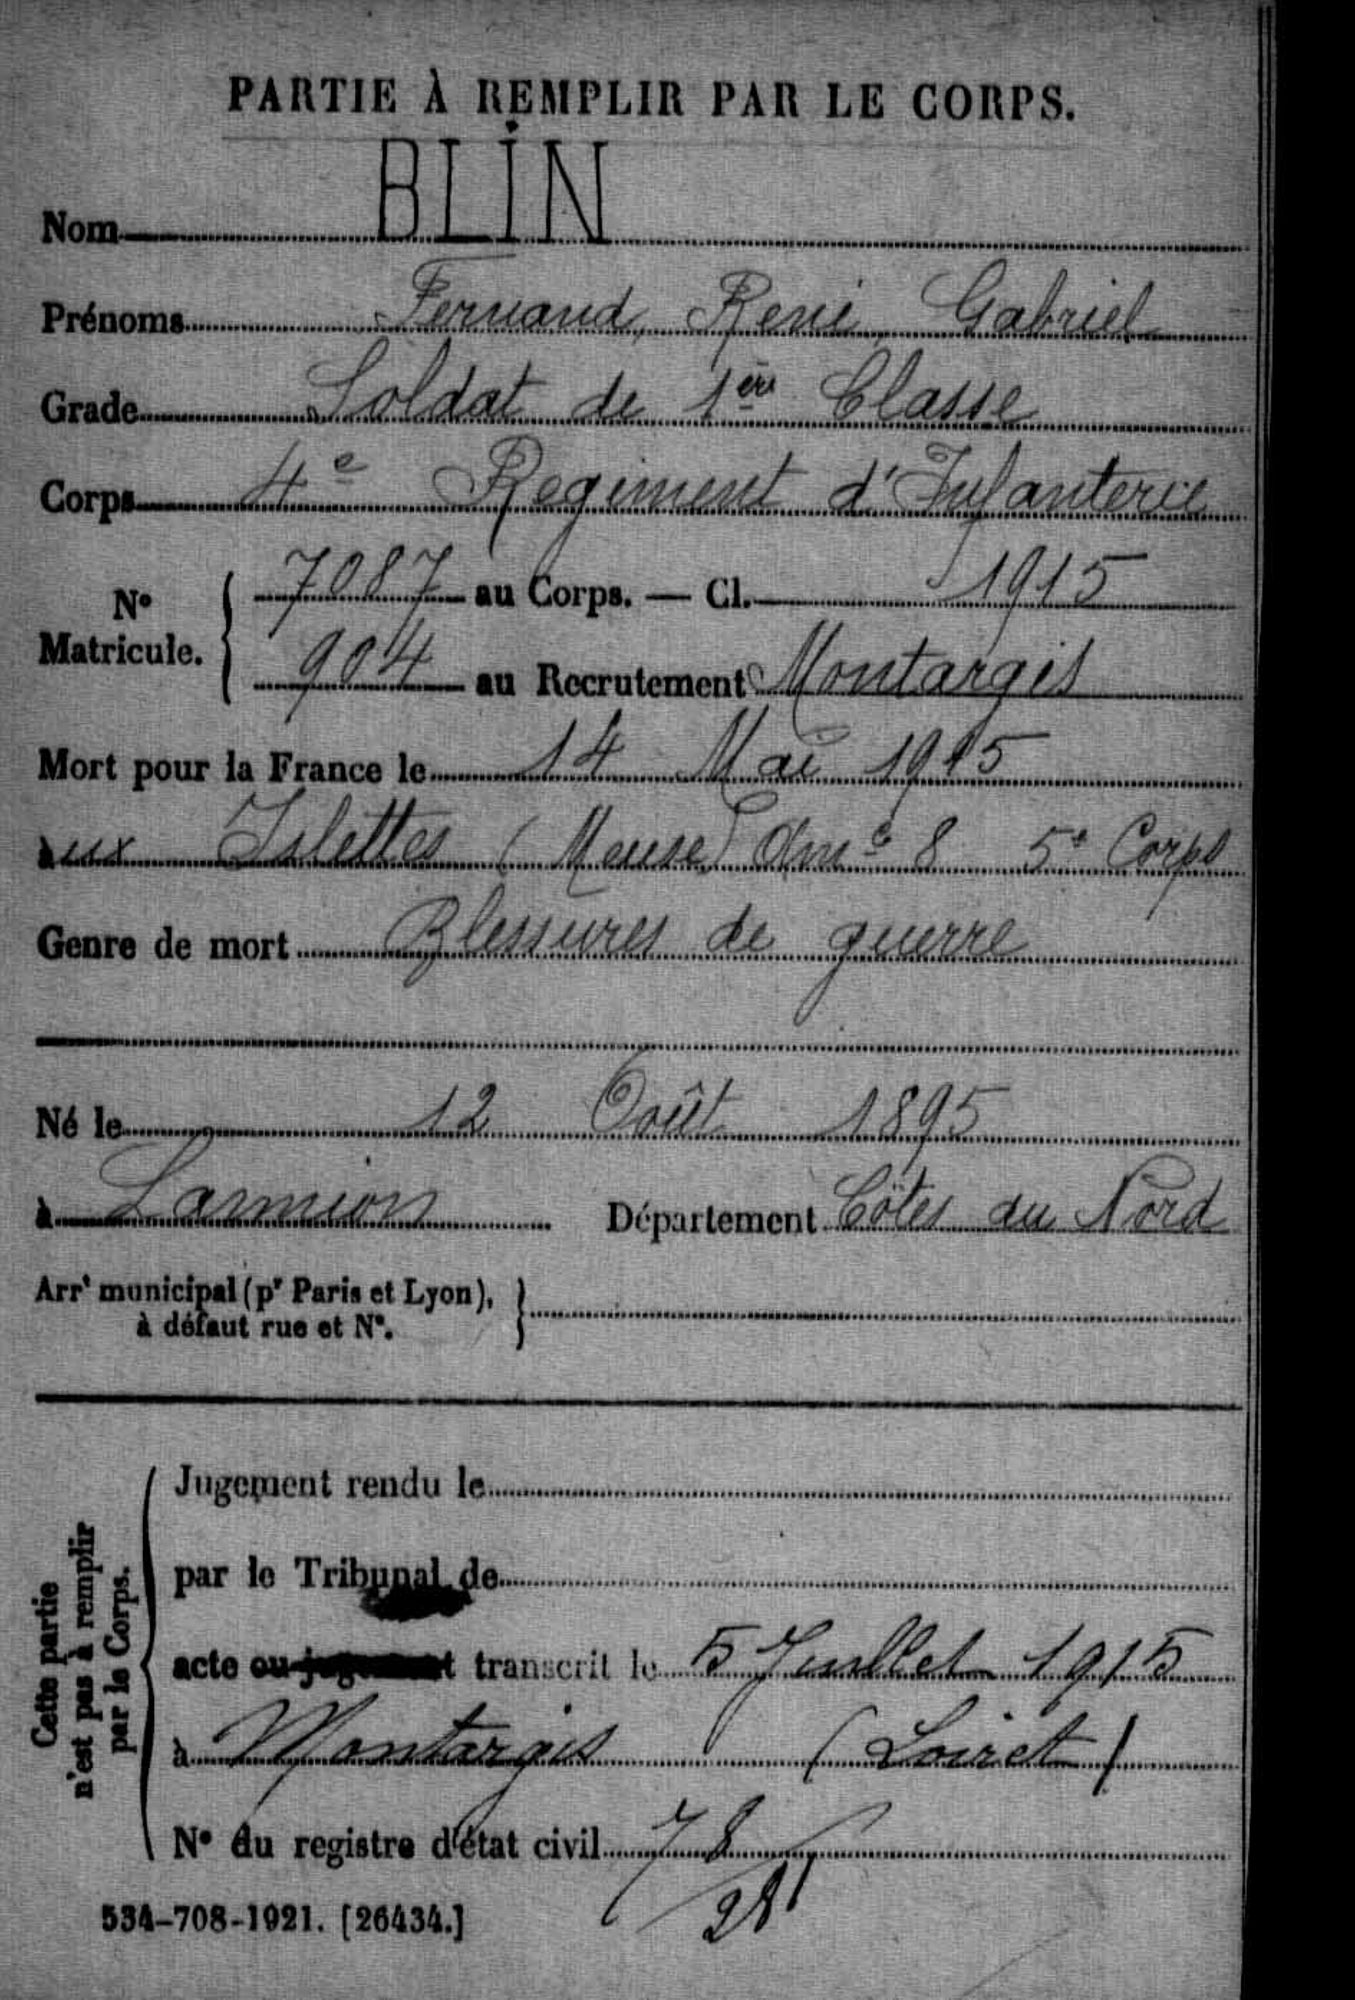 PARTIE À REMPLIR PAR LE CORPS.
Nom BLIN
Prénoms Fernand, René, Gabriel
Grade Soldat de 1ère Classe
Corps 4e Regiment d'Infanterie
N° Matricule. { 7087 au Corps. — Cl. 1915
904 au Recrutement Montargis
Mort pour la France le 14 Mai 1915
aux Islettes (Meuse) Amce 8 5e Corps
Genre de mort Blessures de guerre
Né le 12 Août 1895
à Lannion Département Côtes du Nord
Arrt municipal (pr Paris et Lyon),
à défaut rue et N°. }
Cette partie
n'est pas à remplir
par le Corps.
Jugement rendu le
par le Tribunal de
acte ou jugement transcrit le 5 Juillet 1915
à Montargis (Loiret)
N° du registre d'état civil 78
281
534-708-1921. [26434.]